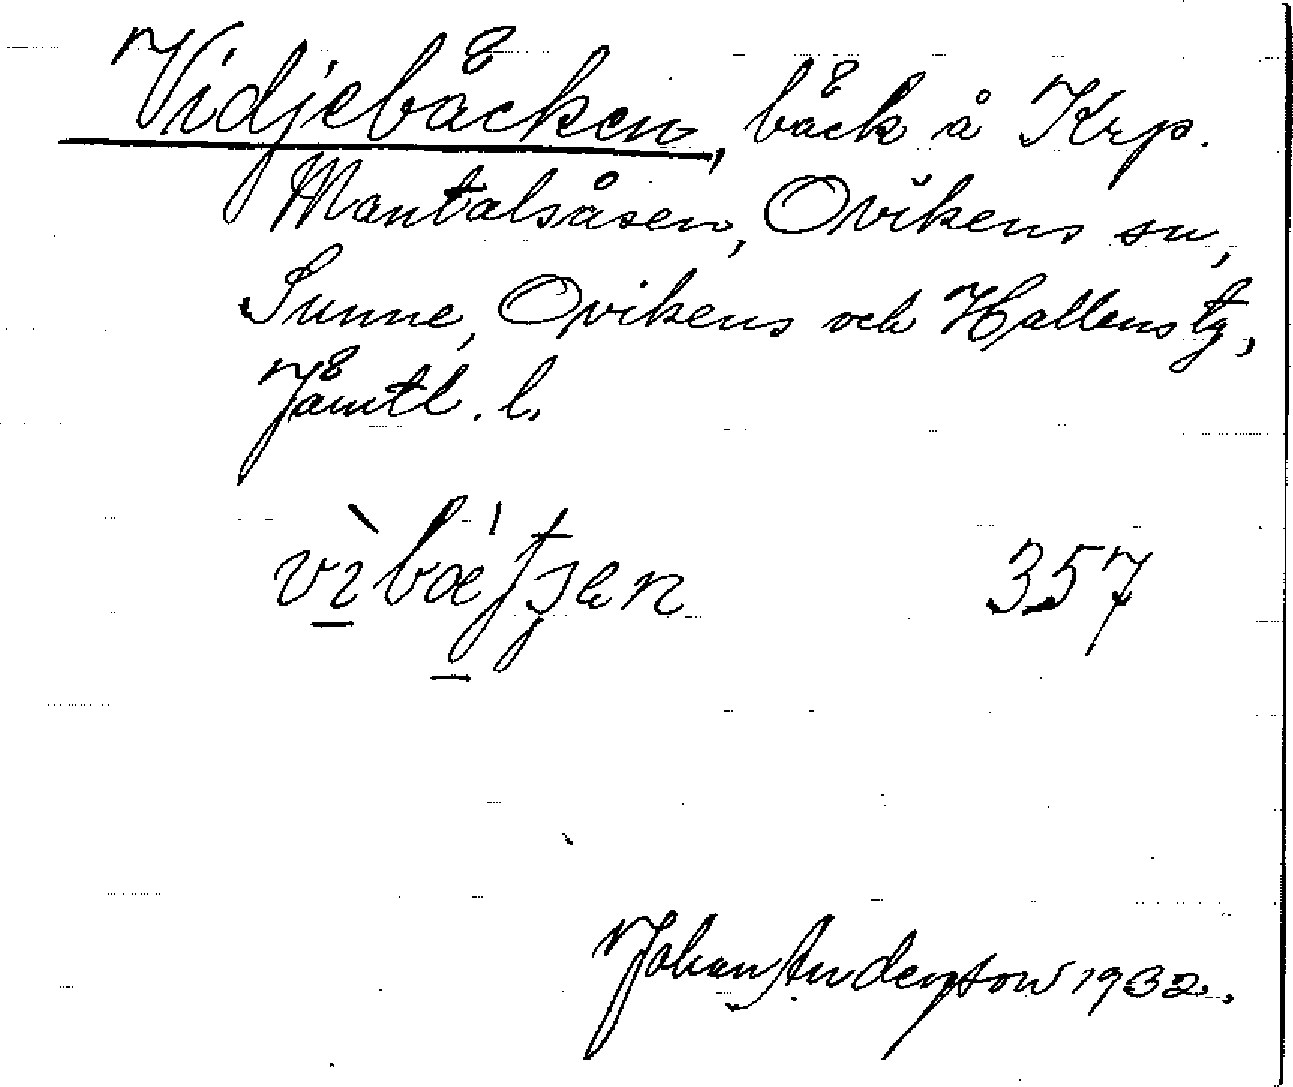 Vidjebäcken, bäck å Krp.
Mantalsåsen, Ovikens sn,
Sunne, Ovikens och Hallens tg,
Jämtl. l.
357
Johan Andersson 1932.